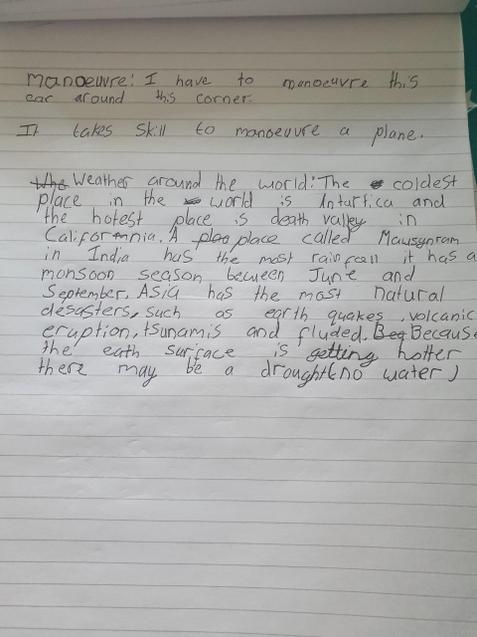 Manoeuvre: I have to manoeuvre this
car around this corner.
It takes skill to manoeuvre a plane.
Weather around the world: The coldest
place in the world is Anturtica and
the hotest place is death valley in
California. A place called Mawsynram
in India has the most rain fall it has a
monsoon season between June and
September. Asia has the most natural
desasters, such as earth quakes, volcanic
eruption, tsunamis and fluded. Because
the eath surface is getting hotter
there may be a drought (no water)